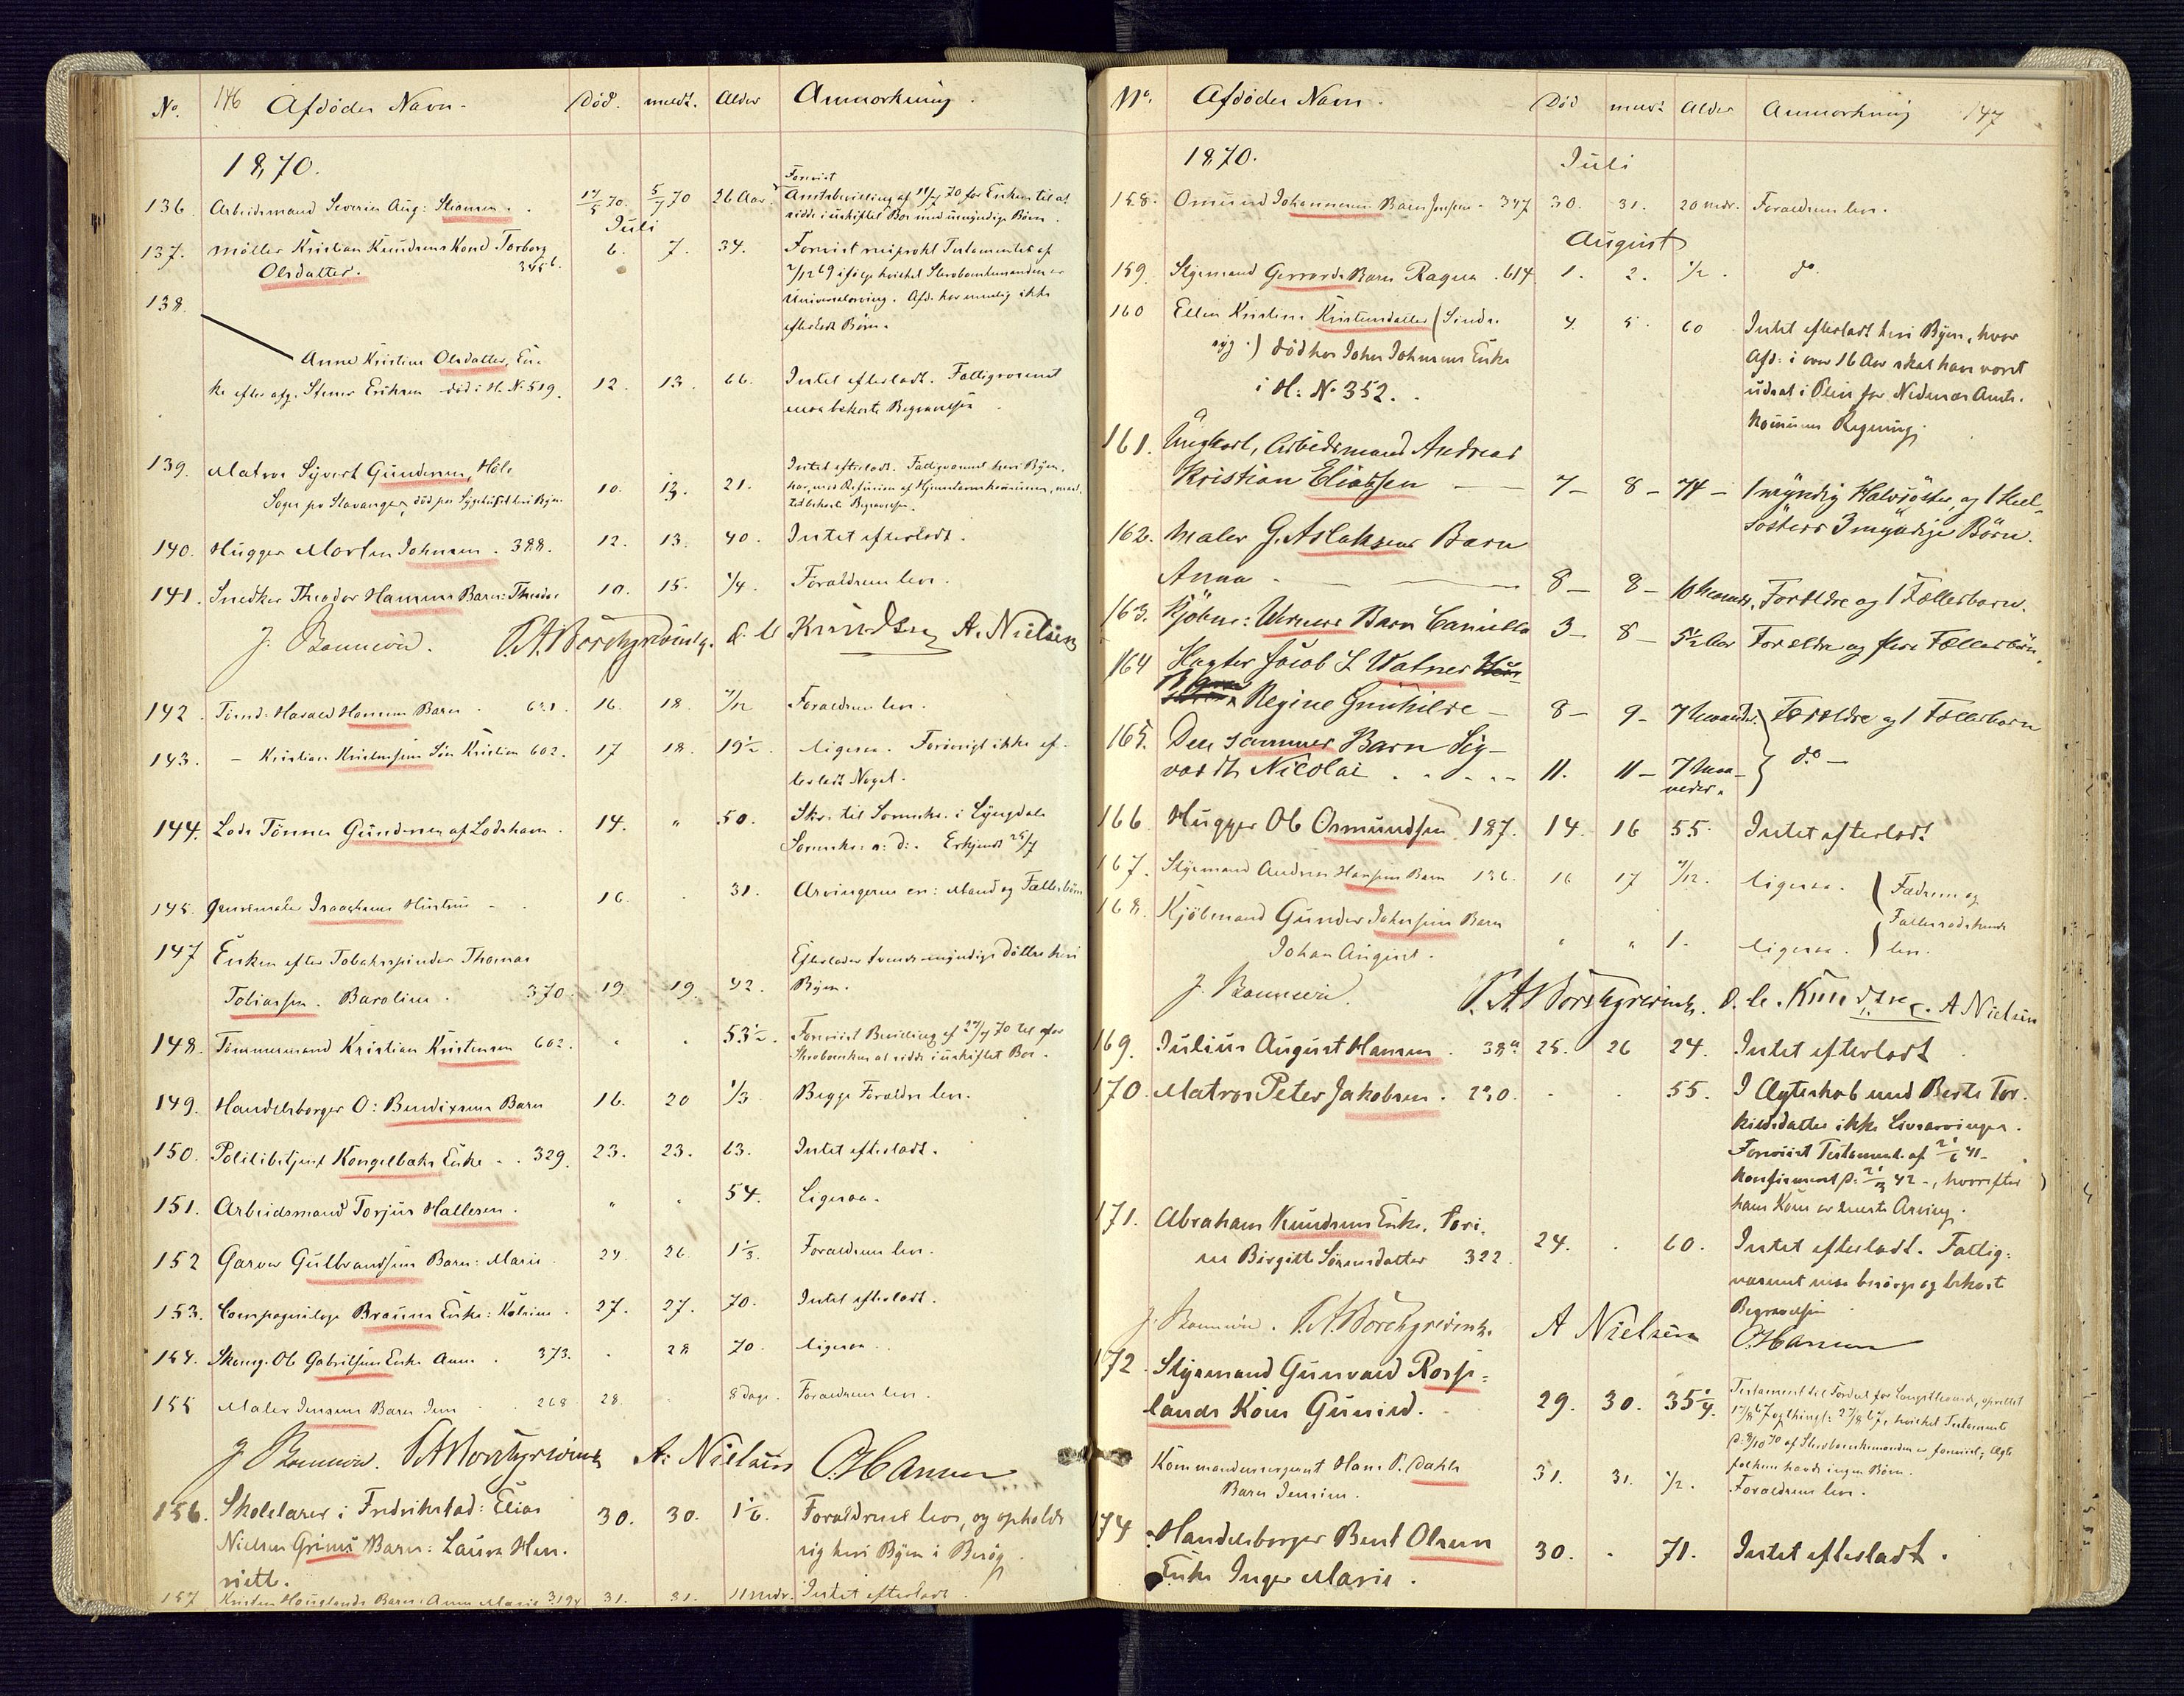 No. 146 Afdödes Navn. Död. meldt. Alder Anmærkning.
1870.
136. Arbeidsmand Severin Aug: 17/5 70. 5/7 70 26 Aar. Forevist
Amtsbevilling af 11/7 70 for Enken til at
sidde i uskiftet Bo med umyndige Börn.
Juli
137. Möller Kristian Knudsens Kone Torborg 6. 7. 34. Forevist reciprokt Testamente af
Olsdatter. 345 b. 7/12 69 ifölge hvilket Stervboenkemanden er
Universalarving. Afd. har nemlig ikke
efterladt Börn.
138.
Anne Kristine Olsdatter, En-
ke efter afg. Stener Eriksen död i H. N. 519. 12. 13. 66. Intet efterladt. Fattigvæsenet
maa bekoste Begravelsen
139. Matros Syvert Gundersen, Höle Intet efterladt. Fattigvæsenet heri Byen,
Sogn pr Stavanger, död paa Sygehuset heri Byen 10. 13. 21. har, mod Refusion af Hjemstavnskommunen,
bekoste Begravelsen.
140. Hugger Morten Johnsen. 388. 12. 13. 40. Intet efterladt.
141. Snedker Theodor Hansens Barn: Theodor 10. 15. 1/4. Forældrene leve.
J. Bonnevie. P. A. Borchgrevink. O. C. Knudsen A. Nielsen
142. Tömd. Harald Hansens Barn. 621 16. 18. 7/12 Forældrene leve.
143. – Kristian Kristensens Sön Kristian 602. 17 18. 19 1/2. ligesaa. Forövrigt ikke ef-
terladt Noget.
144. Lods Tönnes Gundersen af Lodshavn. 14. " 50. Skr. til Sorensk. i Lyngdals
Sorensk: s: d:. Erkjendt 25/7
145. Isaachsens Hustru 16. . 31. Arvingerne ere: Mand og Fællesbörn
147 Enken efter Tobaksspinder Thomas Efterlader tvende umyndige Döttre heri
Tobiassen. Baroline. 370. 19. 19. 42. Byen.
148. Tömmermand Kristian Kristensen 602. " . 53 1/2. Forevist Bevilling af 27/7 70 til for
Stervboenken at sidde i uskiftet Bo.
149. Handelsborger O: Bendixsens Barn 16. 20 1/3 Begge Forældre leve.
150. Politibetjent Kongelbæks Enke. 329. 23. 23. 63. Intet efterladt.
151. Arbeidsmand Torjus Hallesen. " . 54. Ligesaa.
152 Garver Gulbrandsens Barn: Marie 24. 26. 1 1/3. Forældrene leve.
153. Compagnilæge Brauns Enke: Katrine. 27. 27. 70. Intet efterladt.
154. Ole Gabrielsens Enke Anne. 373. . 28 70. ligesaa.
155 Maler Jensens Barn Jens 268 28. 8 dage. Forældrene leve.
J Bonnevie. P A Borchgrevink A: Nielsen O. Hansen
156. Skolelærer i Fredrikstad: Elias 30. 30. 1 1/6. Forældrene leve, og opholde
Nielsen Grims Barn: Laura Hen- sig heri Byen i Besög.
riette.
157 Kristen Houglands Barn: Anne Marie 319 31. 31. 11 mdr. Intet efterladt.
No. Afdödes Navn. Död meldt Alder Anmærkning 147
1870. Juli
158. Omund Johannesens Barn Jensine. 347 30. 31. 20 mdr. Forældrene leve.
August
159. Styrmand Gerrards Barn Ragna. 614. 1. 2. 1/2. do.
160 Ellen Kirstine Kristensdatter (Sinds- 4. 5. 60 Intet efterladt heri Byen, hvor
syg.) död hos John Johnsens Enke Afd: i over 16 Aar skal have været
i H: No 352. udsat i Pleie for Nedenæs Amts-
kommunes Regning.
161. Ungkarl, Arbeidsmand Andreas
Kristian Eliassen — 7 – 8 – 74 – 1 myndig Halvsöster, og 1 Heel-
Sösters 3 myndige Börn.
162. Maler G. Aslaksens Barn
Anna – — 8 – 8 – 10 Maaneder, Forældre og 1 Fællesbarn.
163. Kjöbm: Werners Barn Camilla 3 – 8 – 5 1/2 Aar Forældre og flere Fællesbörn.
164 Jacob L Watnes
Barn Regine Gunhilde – 8 – 9 – 7 Maaneder. Forældre og 1 Fællesbarn
165. Den sammes Barn Sig-
vardt Nicolai . . . . 11. 11 – 7 Maa- do –
neder.
166 Hugger Ole Osmundsen 187. 14. 16 55. Intet efterladt
167. Styrmand Andreas Hansens Barn 136. 16 17 7/12. ligesaa. Fædrene og
168. Kjölmand Gunder Johnsens Barn Fællessödskende
Johan August. " " 1. ligesaa. leve.
J. Bonnevie. P. A. Borchgrevink. O. C. Knudsen. A Nielsen
169. Julius August Hansen. 38 a 25. 26 24. Intet efterladt.
170. Matros Peter Jakobsen. 230. . . 55. I Ægteskab med Berte Tor-
kildsdatter ikke Livsarvinger.
Foreviist Testament af 21/6 41.
Konfirmeret d: 21/3 42 –, hvorefter
hans Kone er eneste Arving.
171. Abraham Knudsens Enke, Seri-
ne Birgitte Sörensdatter 322. 24. . 60. Intet efterladt. Fattig-
væsenet maa besörge og bekoste
Begravelsen.
J. Bonnevie. P. A. Borchgrevink. A Nielsen O. Hansen
172. Styrmand Gunvald Rosse-
lands Kone Gunild. 29. 30. 35 1/4. Testament til Fordel for Længstlevende, oprettet
17/8 67 og thingl: 27/8 67, hvilket Testament
d: 8/10 70 af Stervboenkemanden er forevist; Ægte-
folkene havde ingen Börn.
Kommandeersergeant Hans P. Dahls 31. 31. 1/2. Forældrene leve.
Barn Jensine.
174 Handelsborger Bent Olsens 30. . 71. Intet efterladt.
Enke Inger Marie.